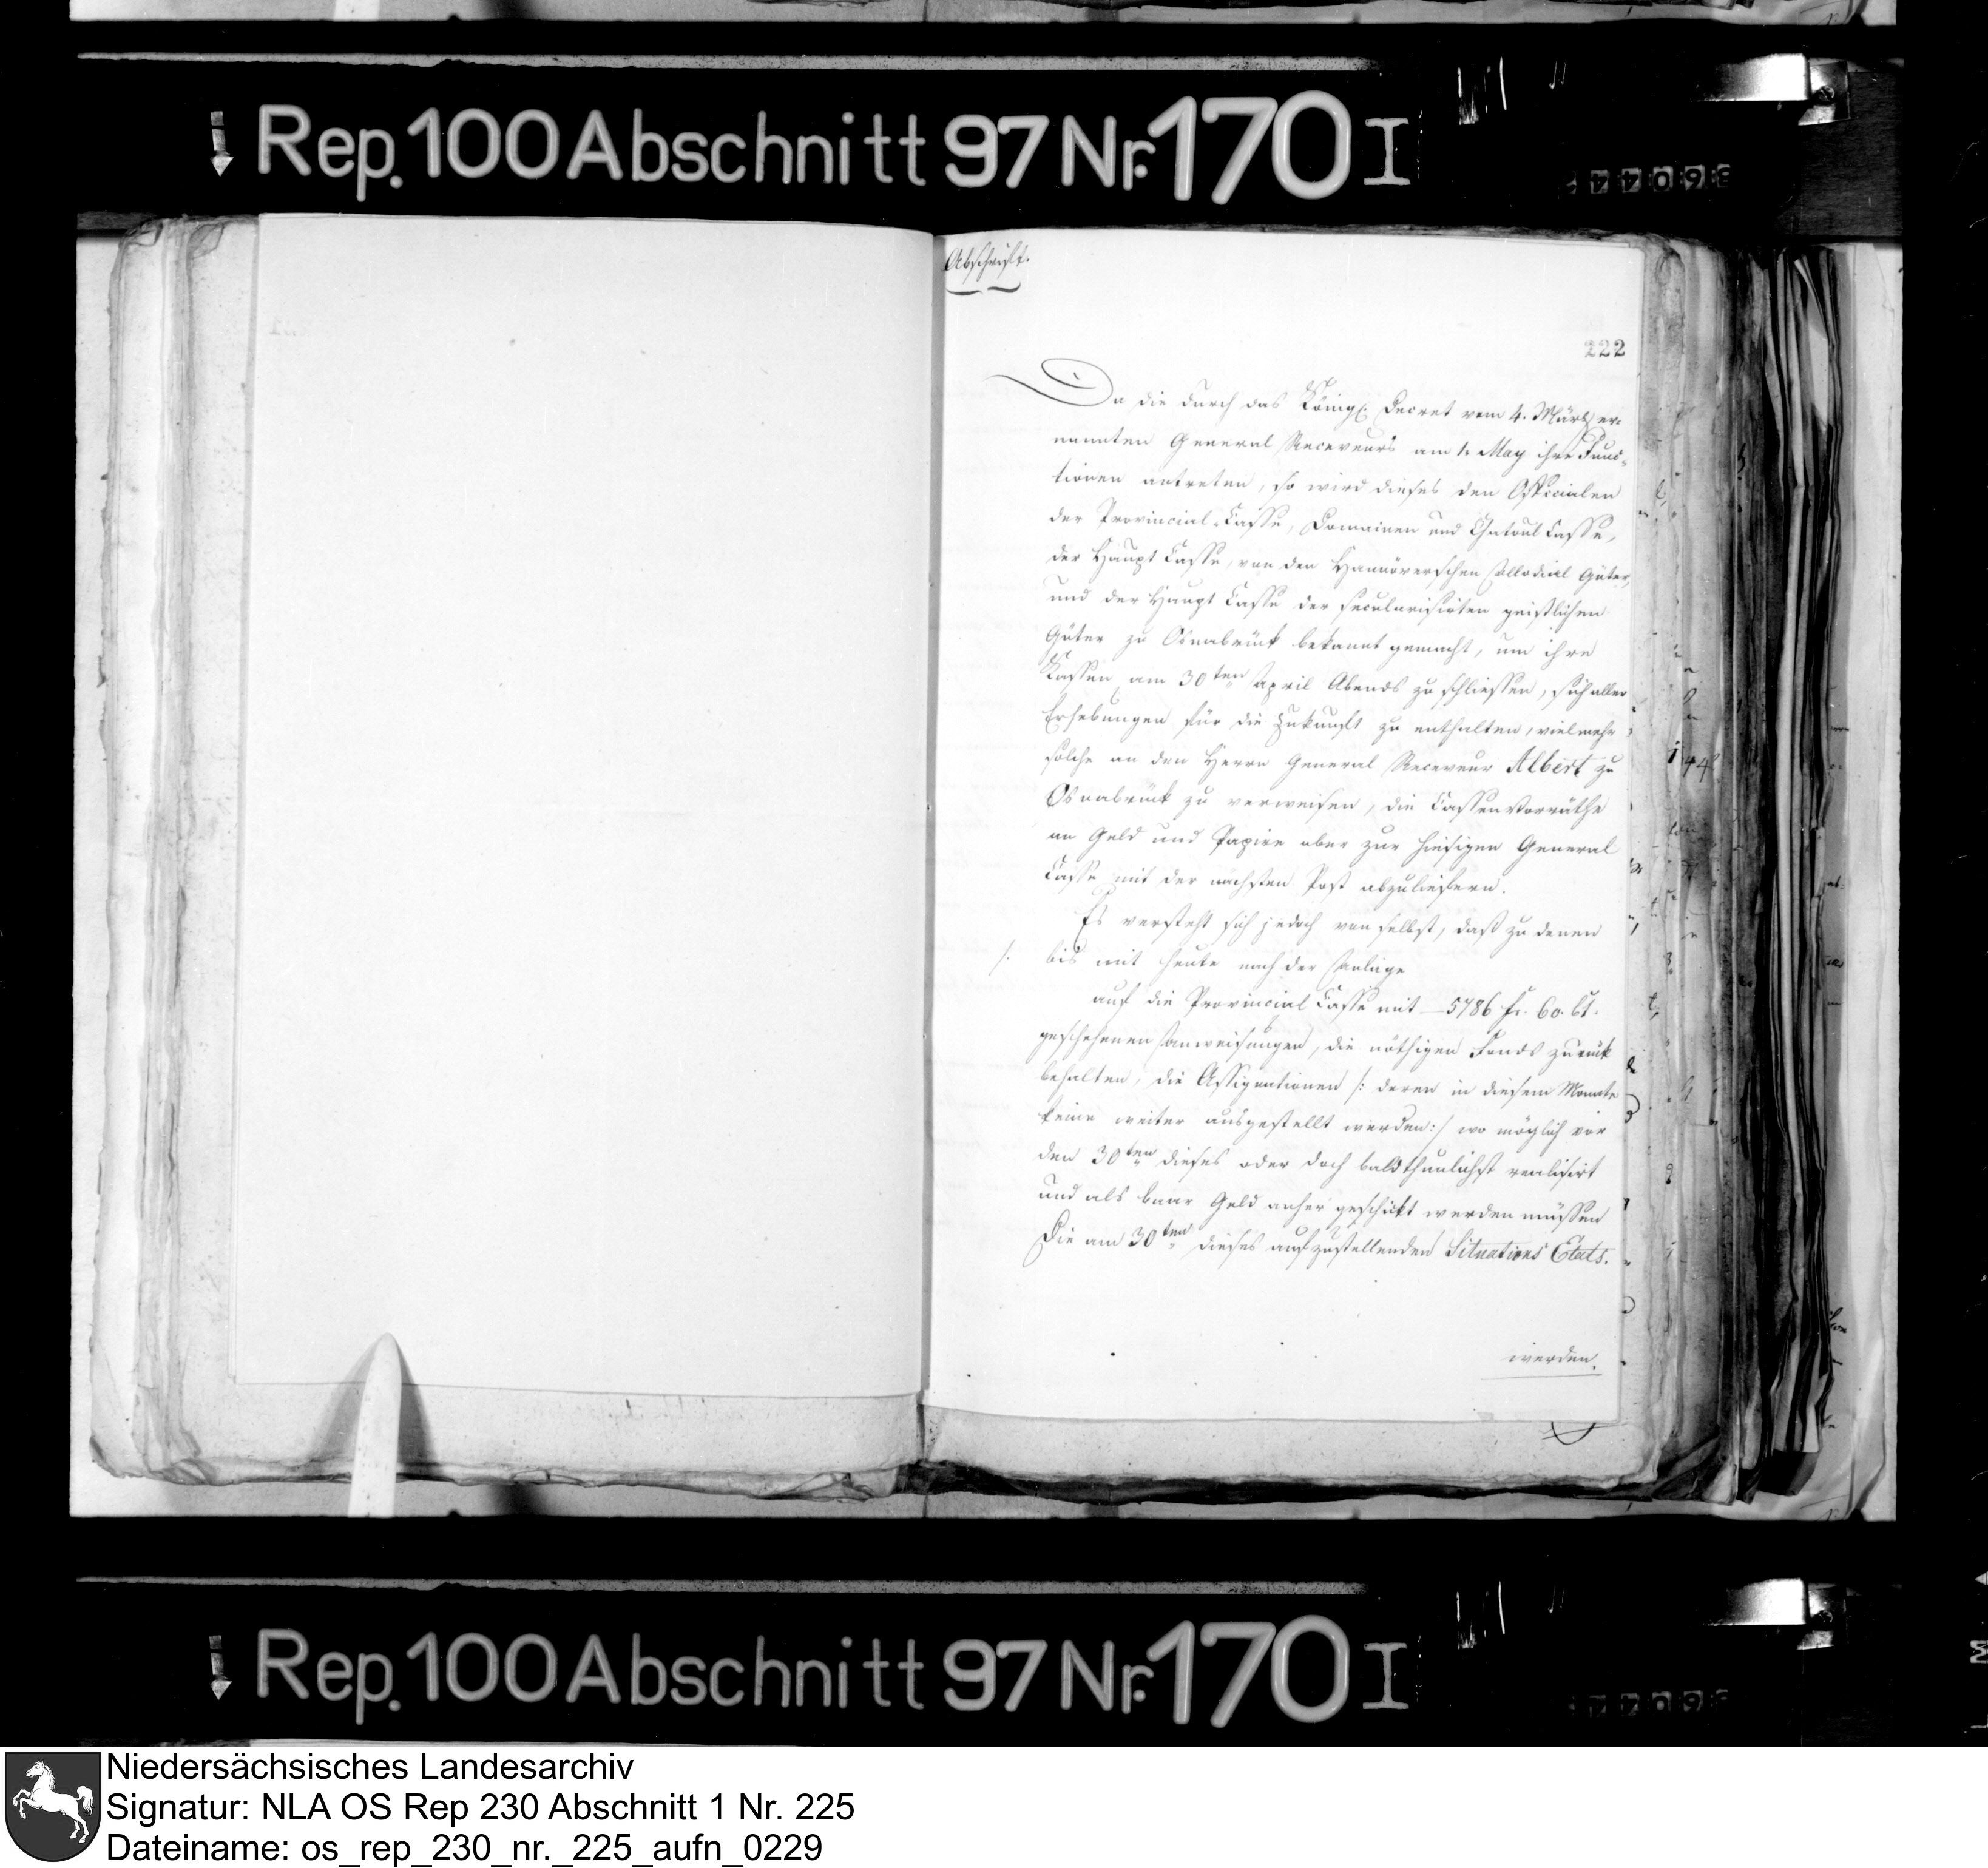 Rep. 100 Abschnitt 97 Nr. 170 I
Abschrift.
222
Da die durch das Königl. Decret vom 4. März er-
nannten General Receveurs am 1. May ihre Func-
tionen antreten, so wird dieses den Officialen
der Provincial-Casse, Domainen und Casse,
der Haupt Casse, von den Hannöverschen Allodial Güter,
und der Haupt Casse der secularisirten geistlichen
Güter zu Osnabrück bekannt gemacht, um ihre
Kassen am 30ten April Abends zu schliessen, sich aller
Erhebungen für die Zukunft zu enthalten, vielmehr
solche an den Herrn General Receveur Albert zu
Osnabrück zu verweisen, die Cassen Vorräthe
an Geld und Papire aber zur hiesigen General
Casse mit der nächsten Post abzuliefern.
Es versteht sich jedoch von selbst, daß zu denen
/. bis mit heute nach der Anlage
auf die Provincial Casse mit — 5786 fr. 60. Ct.
geschehenen Anweisungen, die nöthigen Fonds zurük
behalten, die Assignationen /: deren in diesem Monate
keine weiter ausgestellt werden :/ wo möglich vor
den 30ten dieses oder doch baldthunlichst realisirt
und als baar Geld anher geschickt werden müssen
Die am 30ten dieses aufzustellenden Situations Etats.
werden.
Rep. 100 Abschnitt 97 Nr. 170 I
Niedersächsisches Landesarchiv
Signatur: NLA OS Rep 230 Abschnitt 1 Nr. 225
Dateiname: os_rep_230_nr._225_aufn_0229